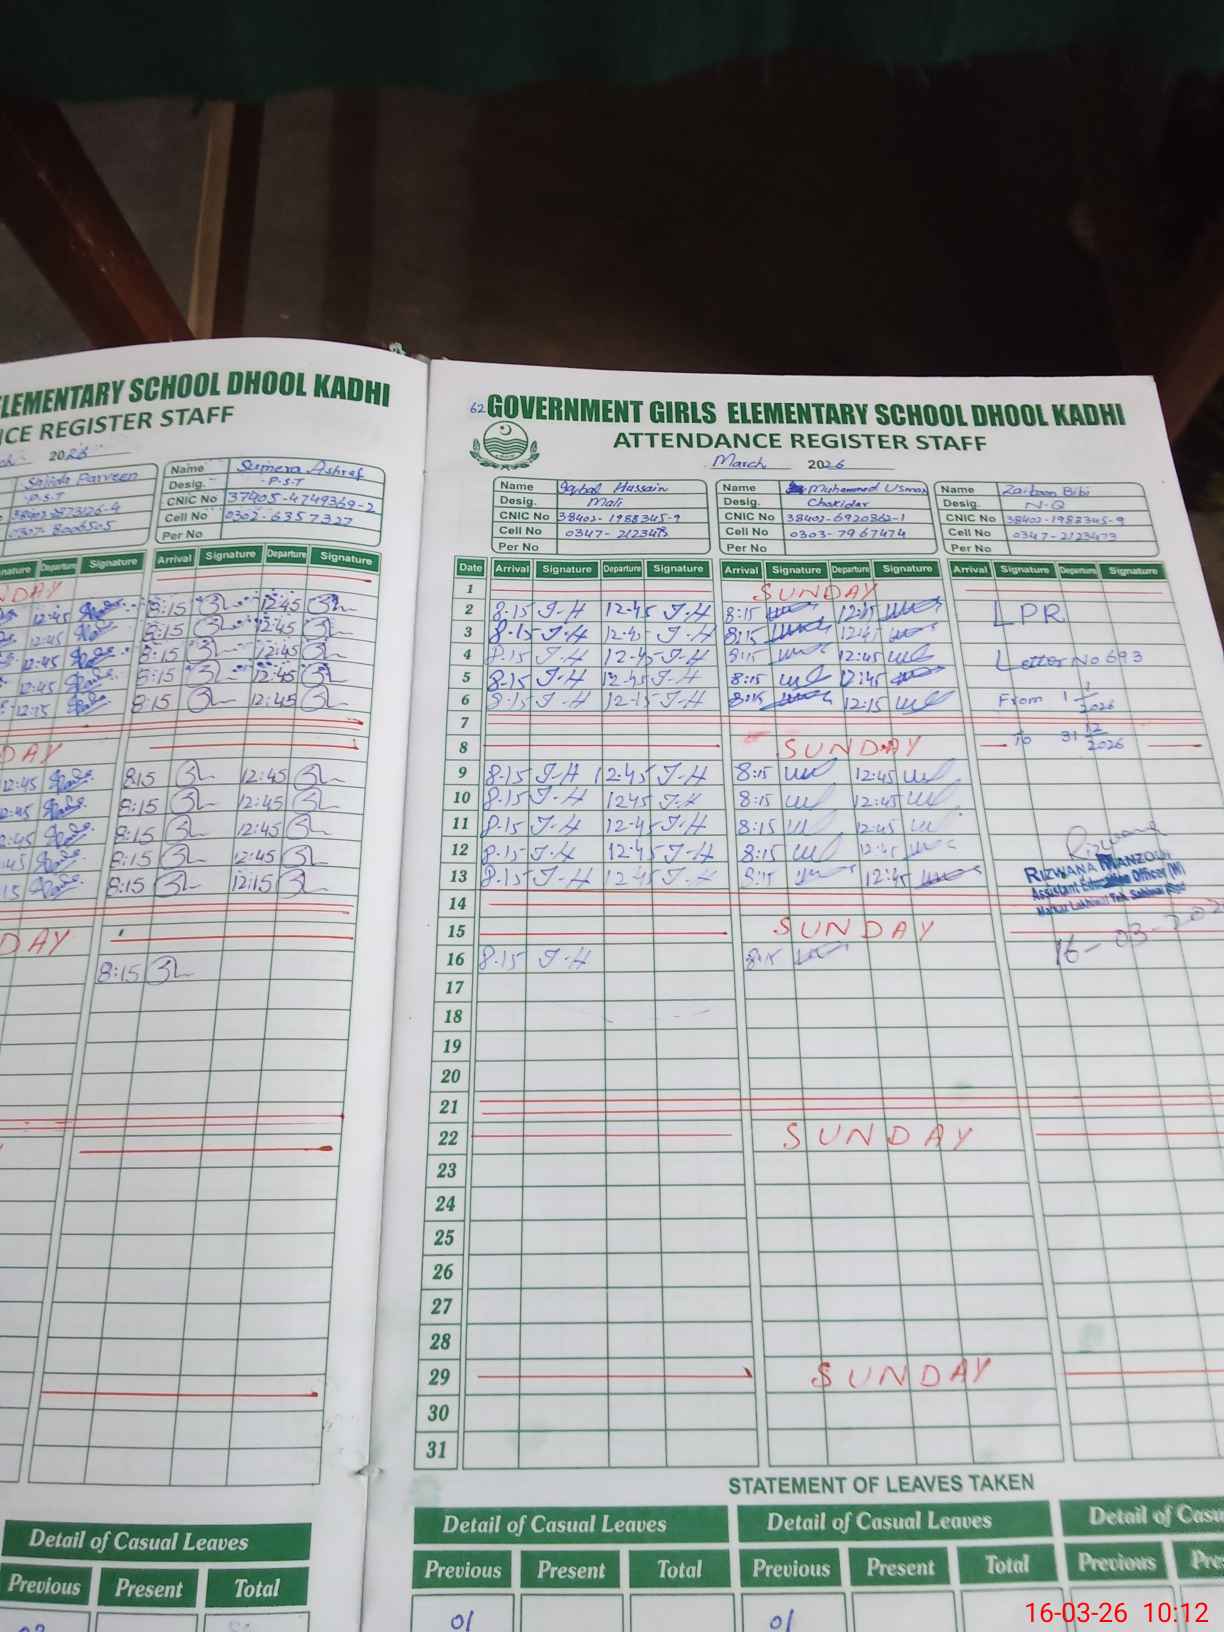 ELEMENTARY SCHOOL DHOOL KADHI
ICE REGISTER STAFF
2026
Shida Parveen
P.S.T
Name Sumera Ashraf
Desig. P.S.T
CNIC No 37405-4749369-2
Cell No 0302-6357327
Per No
Departure Signature Arrival Signature Departure Signature
12:45 8:15 12:45
12:45 8:15 12:45
12:45 8:15 12:45
12:45 8:15 12:45
12:15 8:15 12:45
DAY
12:45 8:15 12:45
8:15 12:45
8:15 12:45
8:15 12:45
8:15 12:15
DAY
8:15
Detail of Casual Leaves
Previous Present Total
62 GOVERNMENT GIRLS ELEMENTARY SCHOOL DHOOL KADHI
ATTENDANCE REGISTER STAFF
March 2026
Name Iqbal Hussain Name Muhammad Usman Name Zaitoon Bibi
Desig. Mali Desig. Chokidar Desig. N-Q
CNIC No 38402-1988345-9 CNIC No 38402-6920862-1 CNIC No 38402-1988345-9
Cell No Cell No 0303-7967474 Cell No 0347-2123473
Per No Per No Per No
Date Arrival Signature Departure Signature Arrival Signature Departure Signature Arrival Signature Departure Signature
1 SUNDAY
2 8:15 I-H 12-45 I-H 8:15 LPR
3 8:15 I-H 12-45 I-H 8:15
4 8:15 I-H 12-45 I-H 8:15 12:45 Letter No 693
5 8:15 I-H 12-45 I-H 8:15 12:45
6 8:15 I-H 12-15 I-H 8:15 12:15 From 1 1/2026
7
8 SUNDAY To 31 12/2026
9 8:15 I-H 12:45 I-H 8:15 12:45
10 8:15 I-H 1245 I-H 8:15 12:45
11 8:15 I-H 12-45 I-H 8:15 12:45
12 8:15 I-H 12:45 I-H 8:15 12:45
13 8:15 I-H 12:45 I-H 8:15 12:45
Rizwana
RIZWANA MANZOOR
Assistant Education Officer (W)
14
15 SUNDAY
16-03-202
16 8:15 I-H 8:15
17
18
19
20
21
22 SUNDAY
23
24
25
26
27
28
29 SUNDAY
30
31
STATEMENT OF LEAVES TAKEN
Detail of Casual Leaves Detail of Casual Leaves Detail of Casu
Previous Present Total Previous Present Total Previous Pre
01 01
16-03-26 10:12